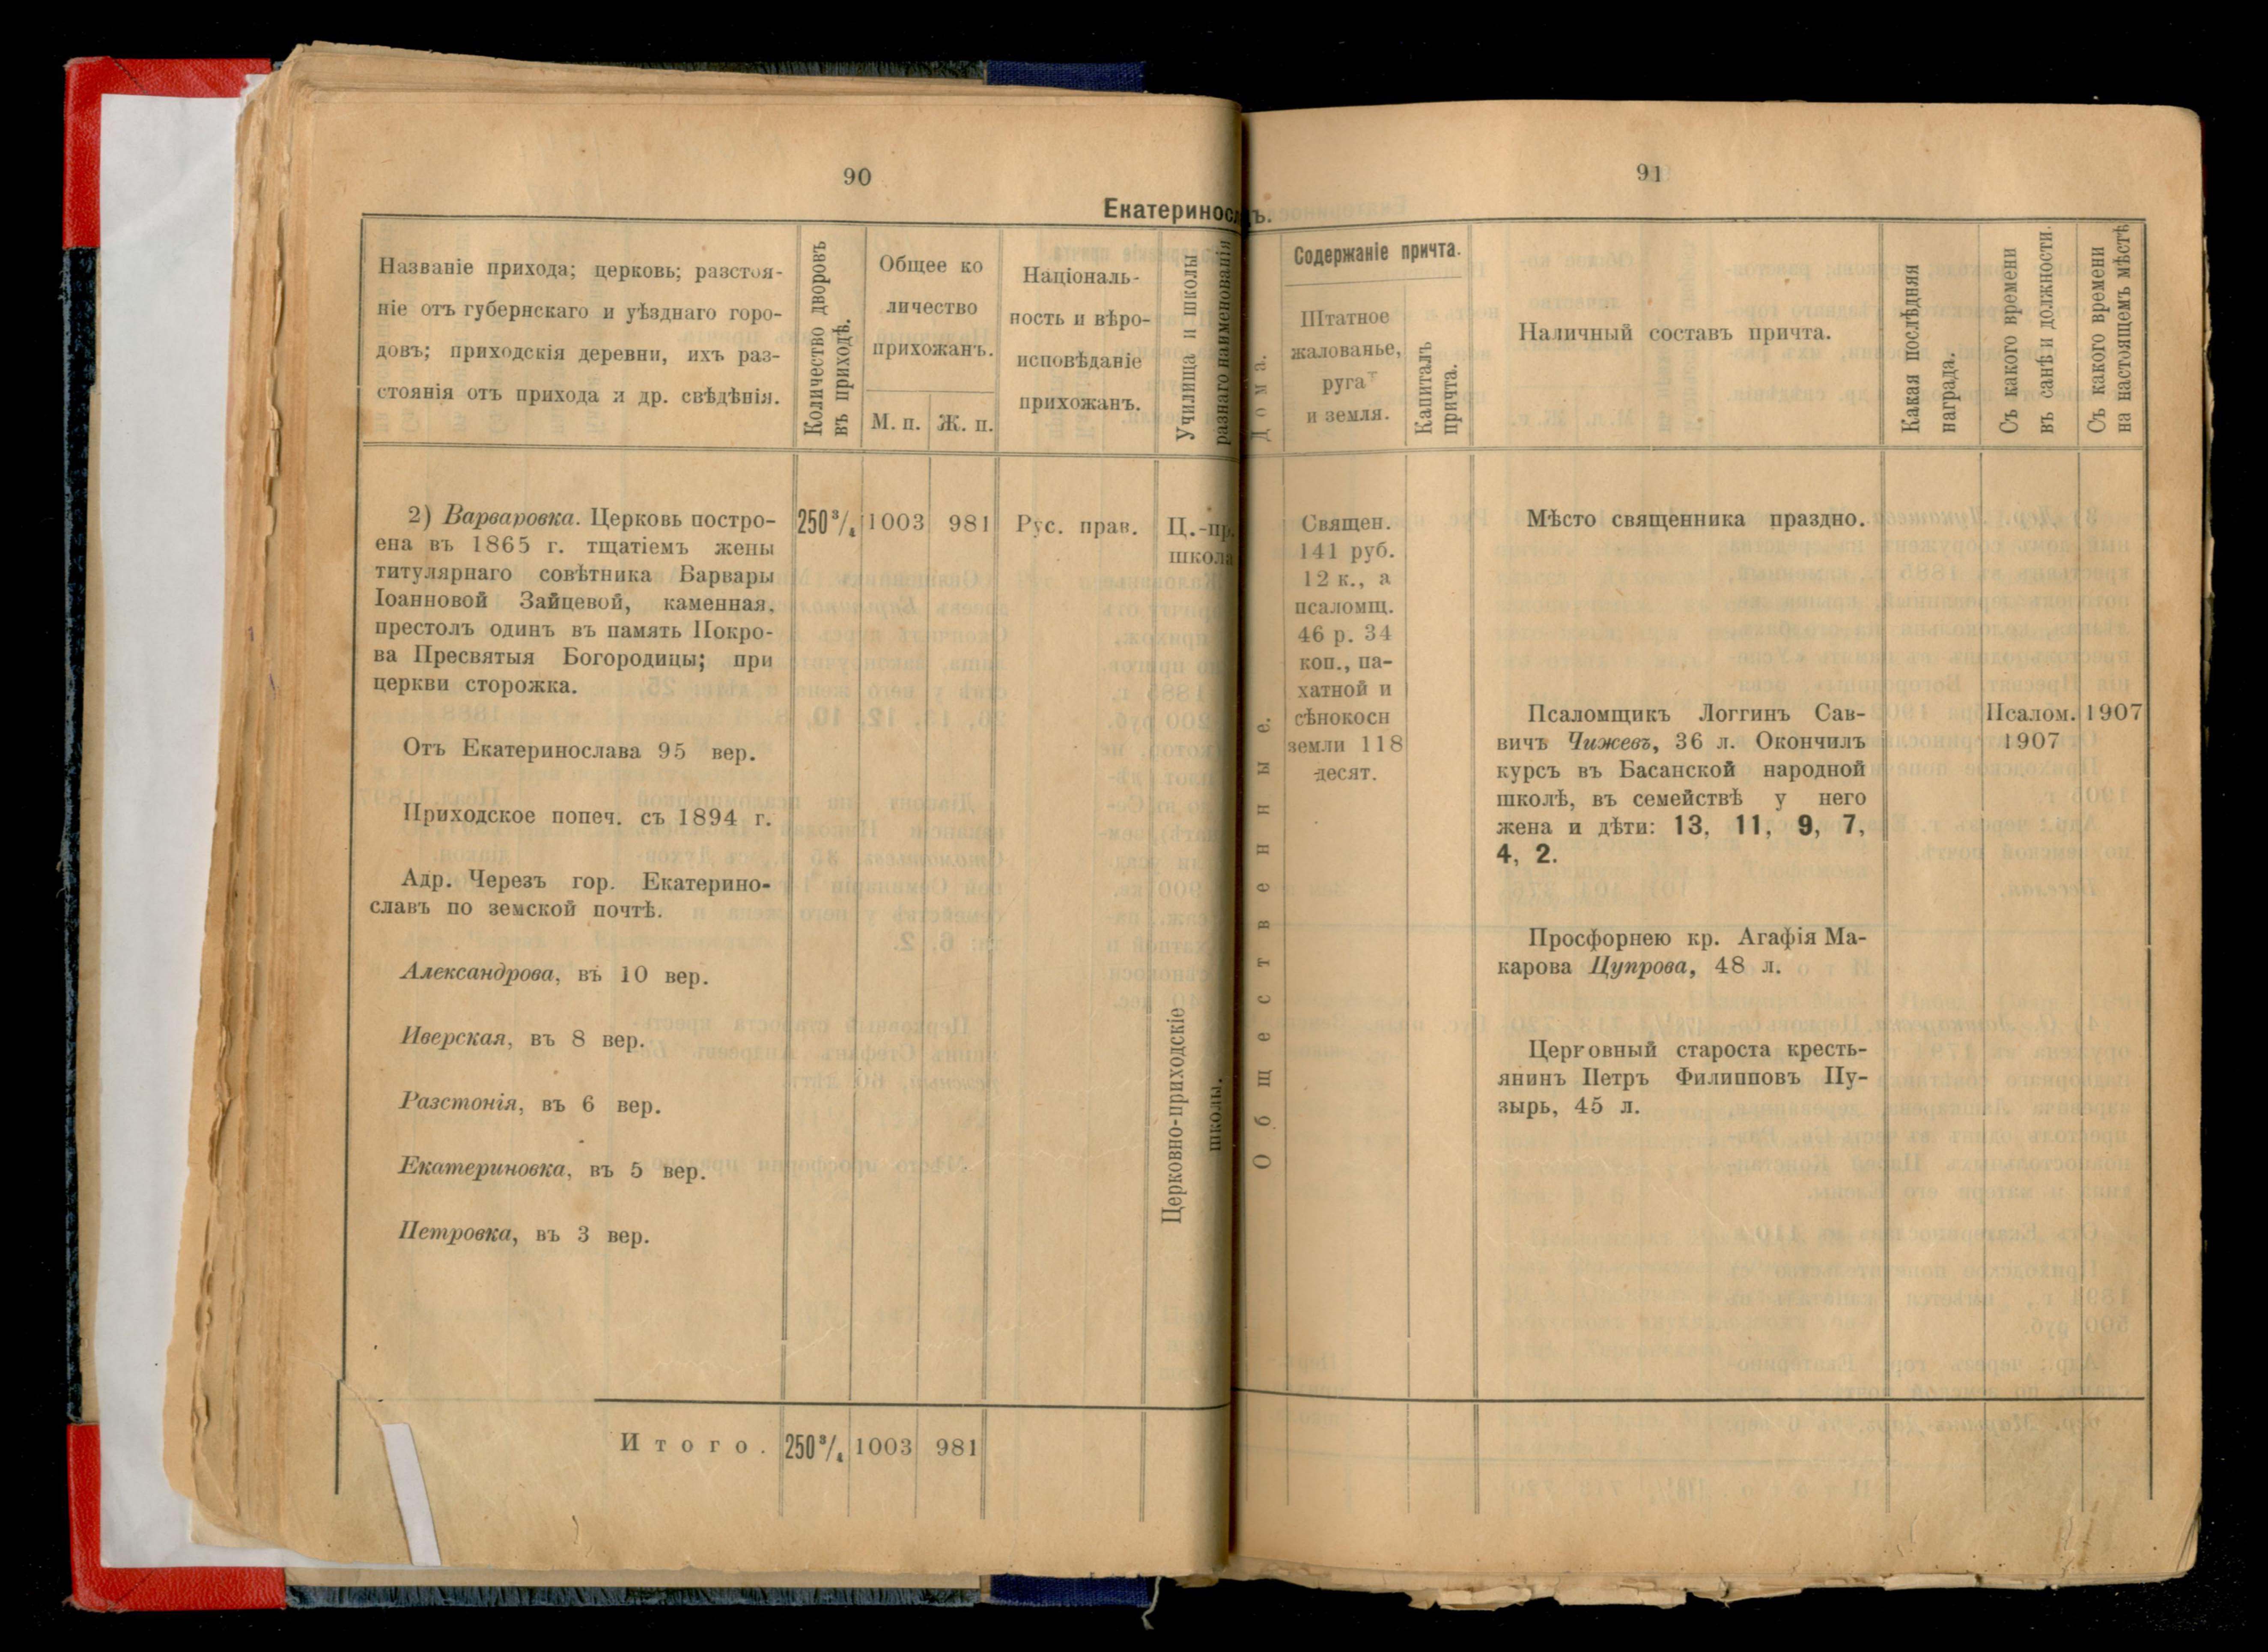 90
Екатеринос
Названіе прихода; церковь; разстоя-
ніе отъ губернскаго и уѣзднаго горо-
довъ; приходскія деревни, ихъ раз-
стоянія отъ прихода и др. свѣдѣнія.
Количество дворовъ
въ приходѣ.
Общее ко
личество
прихожанъ.
М. п.
Ж. п.
Націоналъ-
ность и вѣро-
исповѣданіе
прихожанъ.
Училища и школы
разнаго наименованія
2) Варваровка. Церковь постро-
ена въ 1865 г. тщатіемъ жены
титулярнаго совѣтника Варвары
Іоанновой Зайцевой, каменная,
престолъ одинъ въ память Покро-
ва Пресвятыя Богородицы; при
церкви сторожка.
250³/₄
1003
981
Рус. прав.
Ц.-пр.
школа
Отъ Екатеринослава 95 вер.
Приходское попеч. съ 1894 г.
Адр. Черезъ гор. Екатерино-
славъ по земской почтѣ.
Александрова, въ 10 вер.
Иверская, въ 8 вер.
Разстонія, въ 6 вер.
Екатериновка, въ 5 вер.
Петровка, въ 3 вер.
Церковно-приходскіе
школы.
Итого. 250³/₄ 1003 981
91
ъ.
Дома.
Содержаніе причта.
Штатное
жалованье,
руга
и земля.
Капиталъ
причта.
Наличный составъ причта.
Какая послѣдняя
награда.
Съ какого времени
въ санѣ и должности.
Съ какого времени
на настоящемъ мѣстѣ
Общественные.
Священ.
141 руб.
12 к., а
псаломщ.
46 р. 34
коп., па-
хатной и
сѣнокосн
земли 118
десят.
Мѣсто священника праздно.
Псаломщикъ Логгинъ Сав-
вичъ Чижевъ, 36 л. Окончилъ
курсъ въ Басанской народной
школѣ, въ семействѣ у него
жена и дѣти: 13, 11, 9, 7,
4, 2.
Псалом.
1907
1907
Просфорнею кр. Агафія Ма-
карова Цупрова, 48 л.
Церковный староста кресть-
янинъ Петръ Филипповъ Пу-
зырь, 45 л.